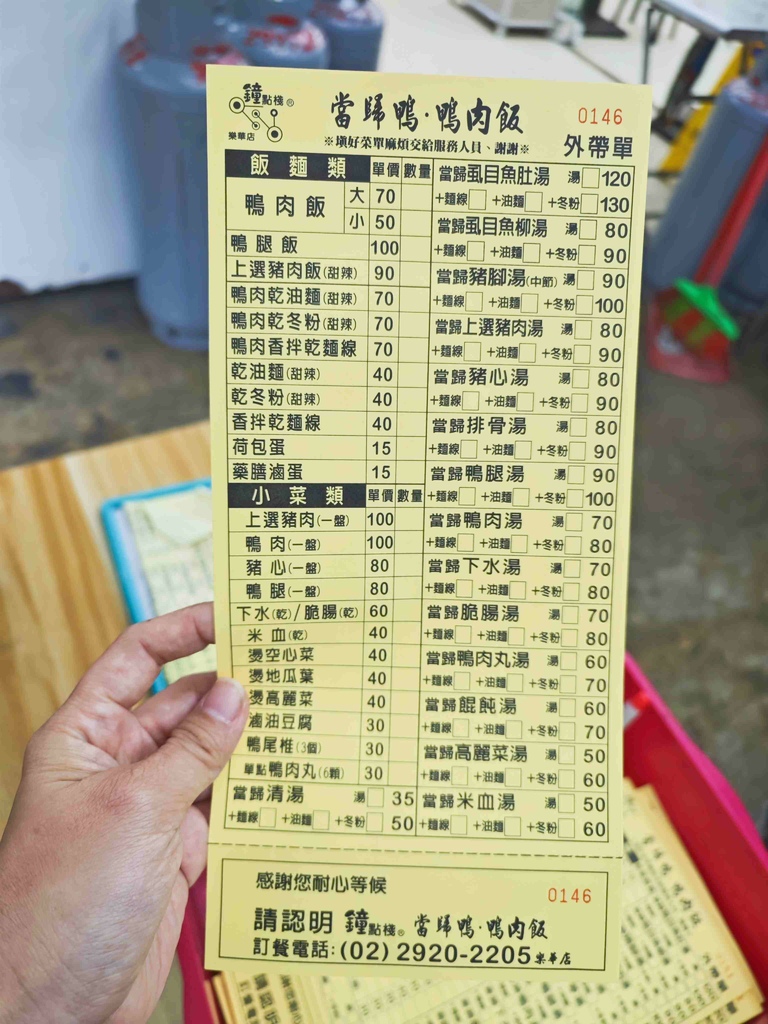 鐘點棧®
樂華店
當歸鴨·鴨肉飯
0146
※填好菜單麻煩交給服務人員、謝謝※
外帶單
飯麵類 單價 數量
鴨肉飯 大 70
小 50
鴨腿飯 100
上選豬肉飯(甜辣) 90
鴨肉乾油麵(甜辣) 70
鴨肉乾冬粉(甜辣) 70
鴨肉香拌乾麵線 70
乾油麵(甜辣) 40
乾冬粉(甜辣) 40
香拌乾麵線 40
荷包蛋 15
藥膳滷蛋 15
小菜類 單價 數量
上選豬肉(一盤) 100
鴨肉(一盤) 100
豬心(一盤) 80
鴨腿(一盤) 80
下水(乾)/脆腸(乾) 60
米血(乾) 40
燙空心菜 40
燙地瓜葉 40
燙高麗菜 40
滷油豆腐 30
鴨尾椎(3個) 30
單點鴨肉丸(6顆) 30
當歸清湯 湯 35
+麵線 +油麵 +冬粉 50
當歸虱目魚肚湯 湯 120
+麵線 +油麵 +冬粉 130
當歸虱目魚柳湯 湯 80
+麵線 +油麵 +冬粉 90
當歸豬腳湯(中節) 湯 90
+麵線 +油麵 +冬粉 100
當歸上選豬肉湯 湯 80
+麵線 +油麵 +冬粉 90
當歸豬心湯 湯 80
+麵線 +油麵 +冬粉 90
當歸排骨湯 湯 80
+麵線 +油麵 +冬粉 90
當歸鴨腿湯 湯 90
+麵線 +油麵 +冬粉 100
當歸鴨肉湯 湯 70
+麵線 +油麵 +冬粉 80
當歸下水湯 湯 70
+麵線 +油麵 +冬粉 80
當歸脆腸湯 湯 70
+麵線 +油麵 +冬粉 80
當歸鴨肉丸湯 湯 60
+麵線 +油麵 +冬粉 70
當歸餛飩湯 湯 60
+麵線 +油麵 +冬粉 70
當歸高麗菜湯 湯 50
+麵線 +油麵 +冬粉 60
當歸米血湯 湯 50
+麵線 +油麵 +冬粉 60
感謝您耐心等候
0146
請認明 鐘點棧® 當歸鴨·鴨肉飯
訂餐電話:(02) 2920-2205 樂華店